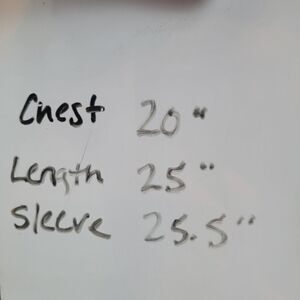 Chest 20"
Length 25"
Sleeve 25.5"